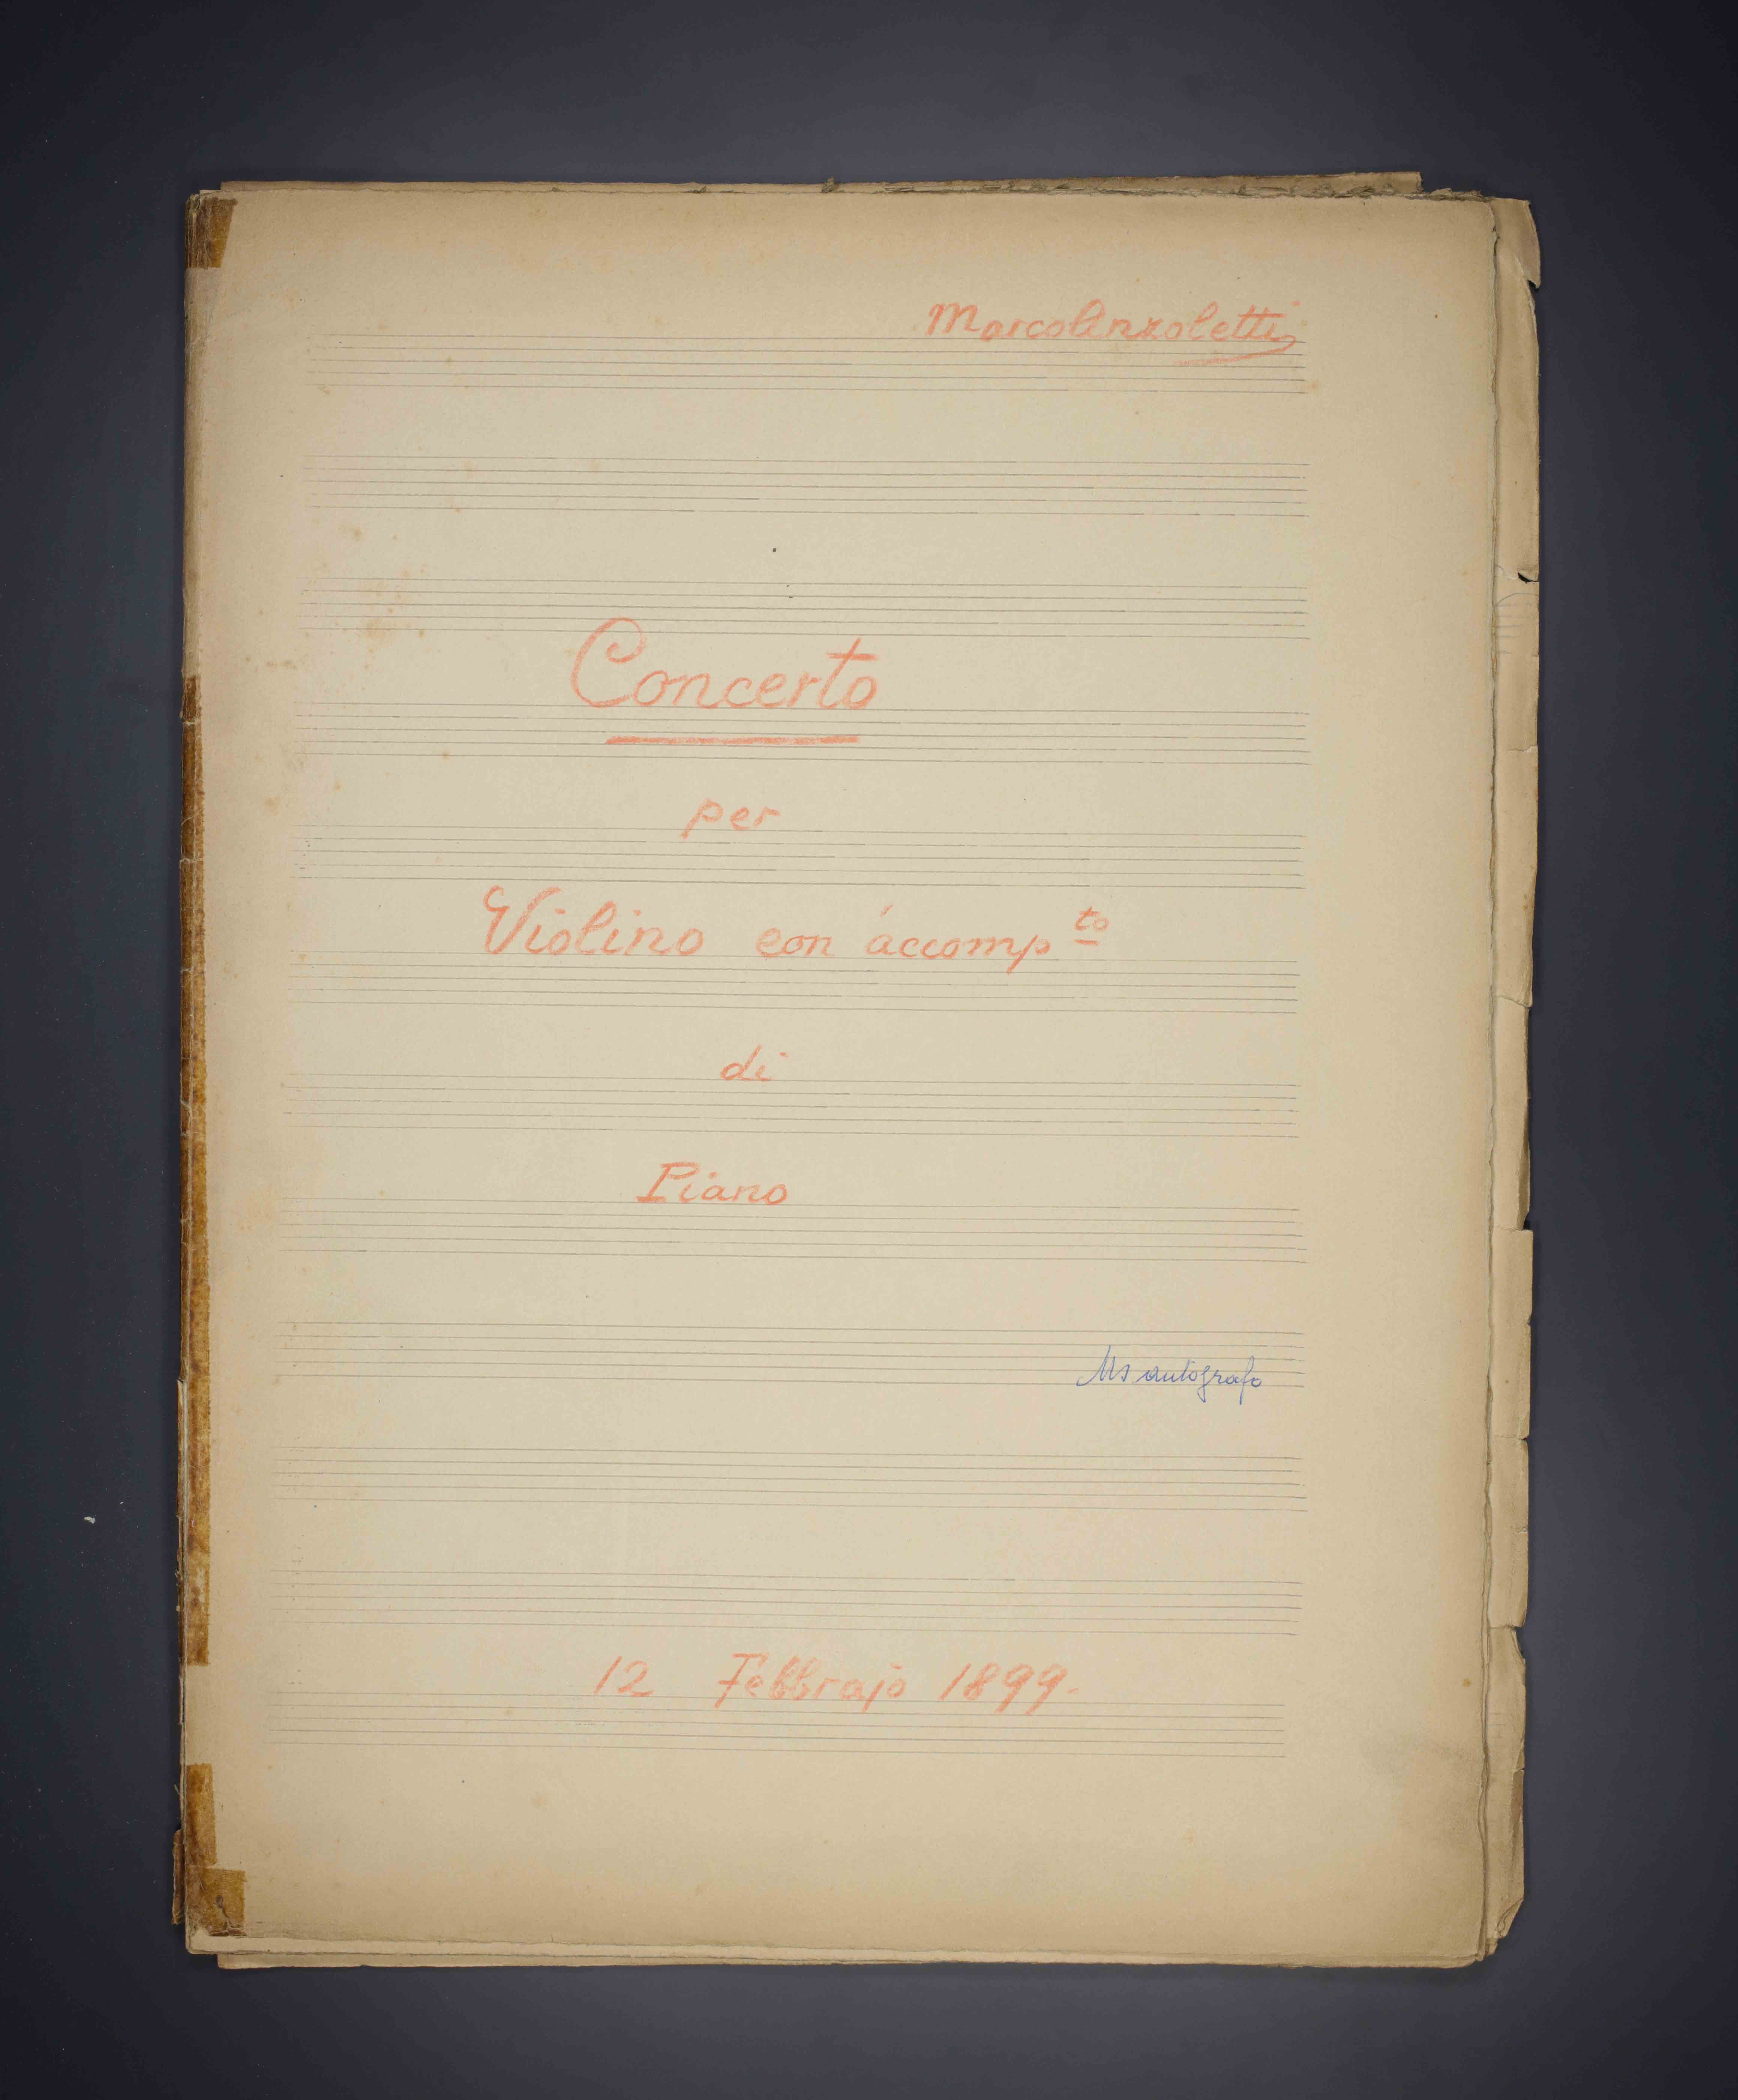 Marco Anzoletti
Concerto
per
Violino con accomp to
di
Piano
Ms autografo
12 Febbrajo 1899.